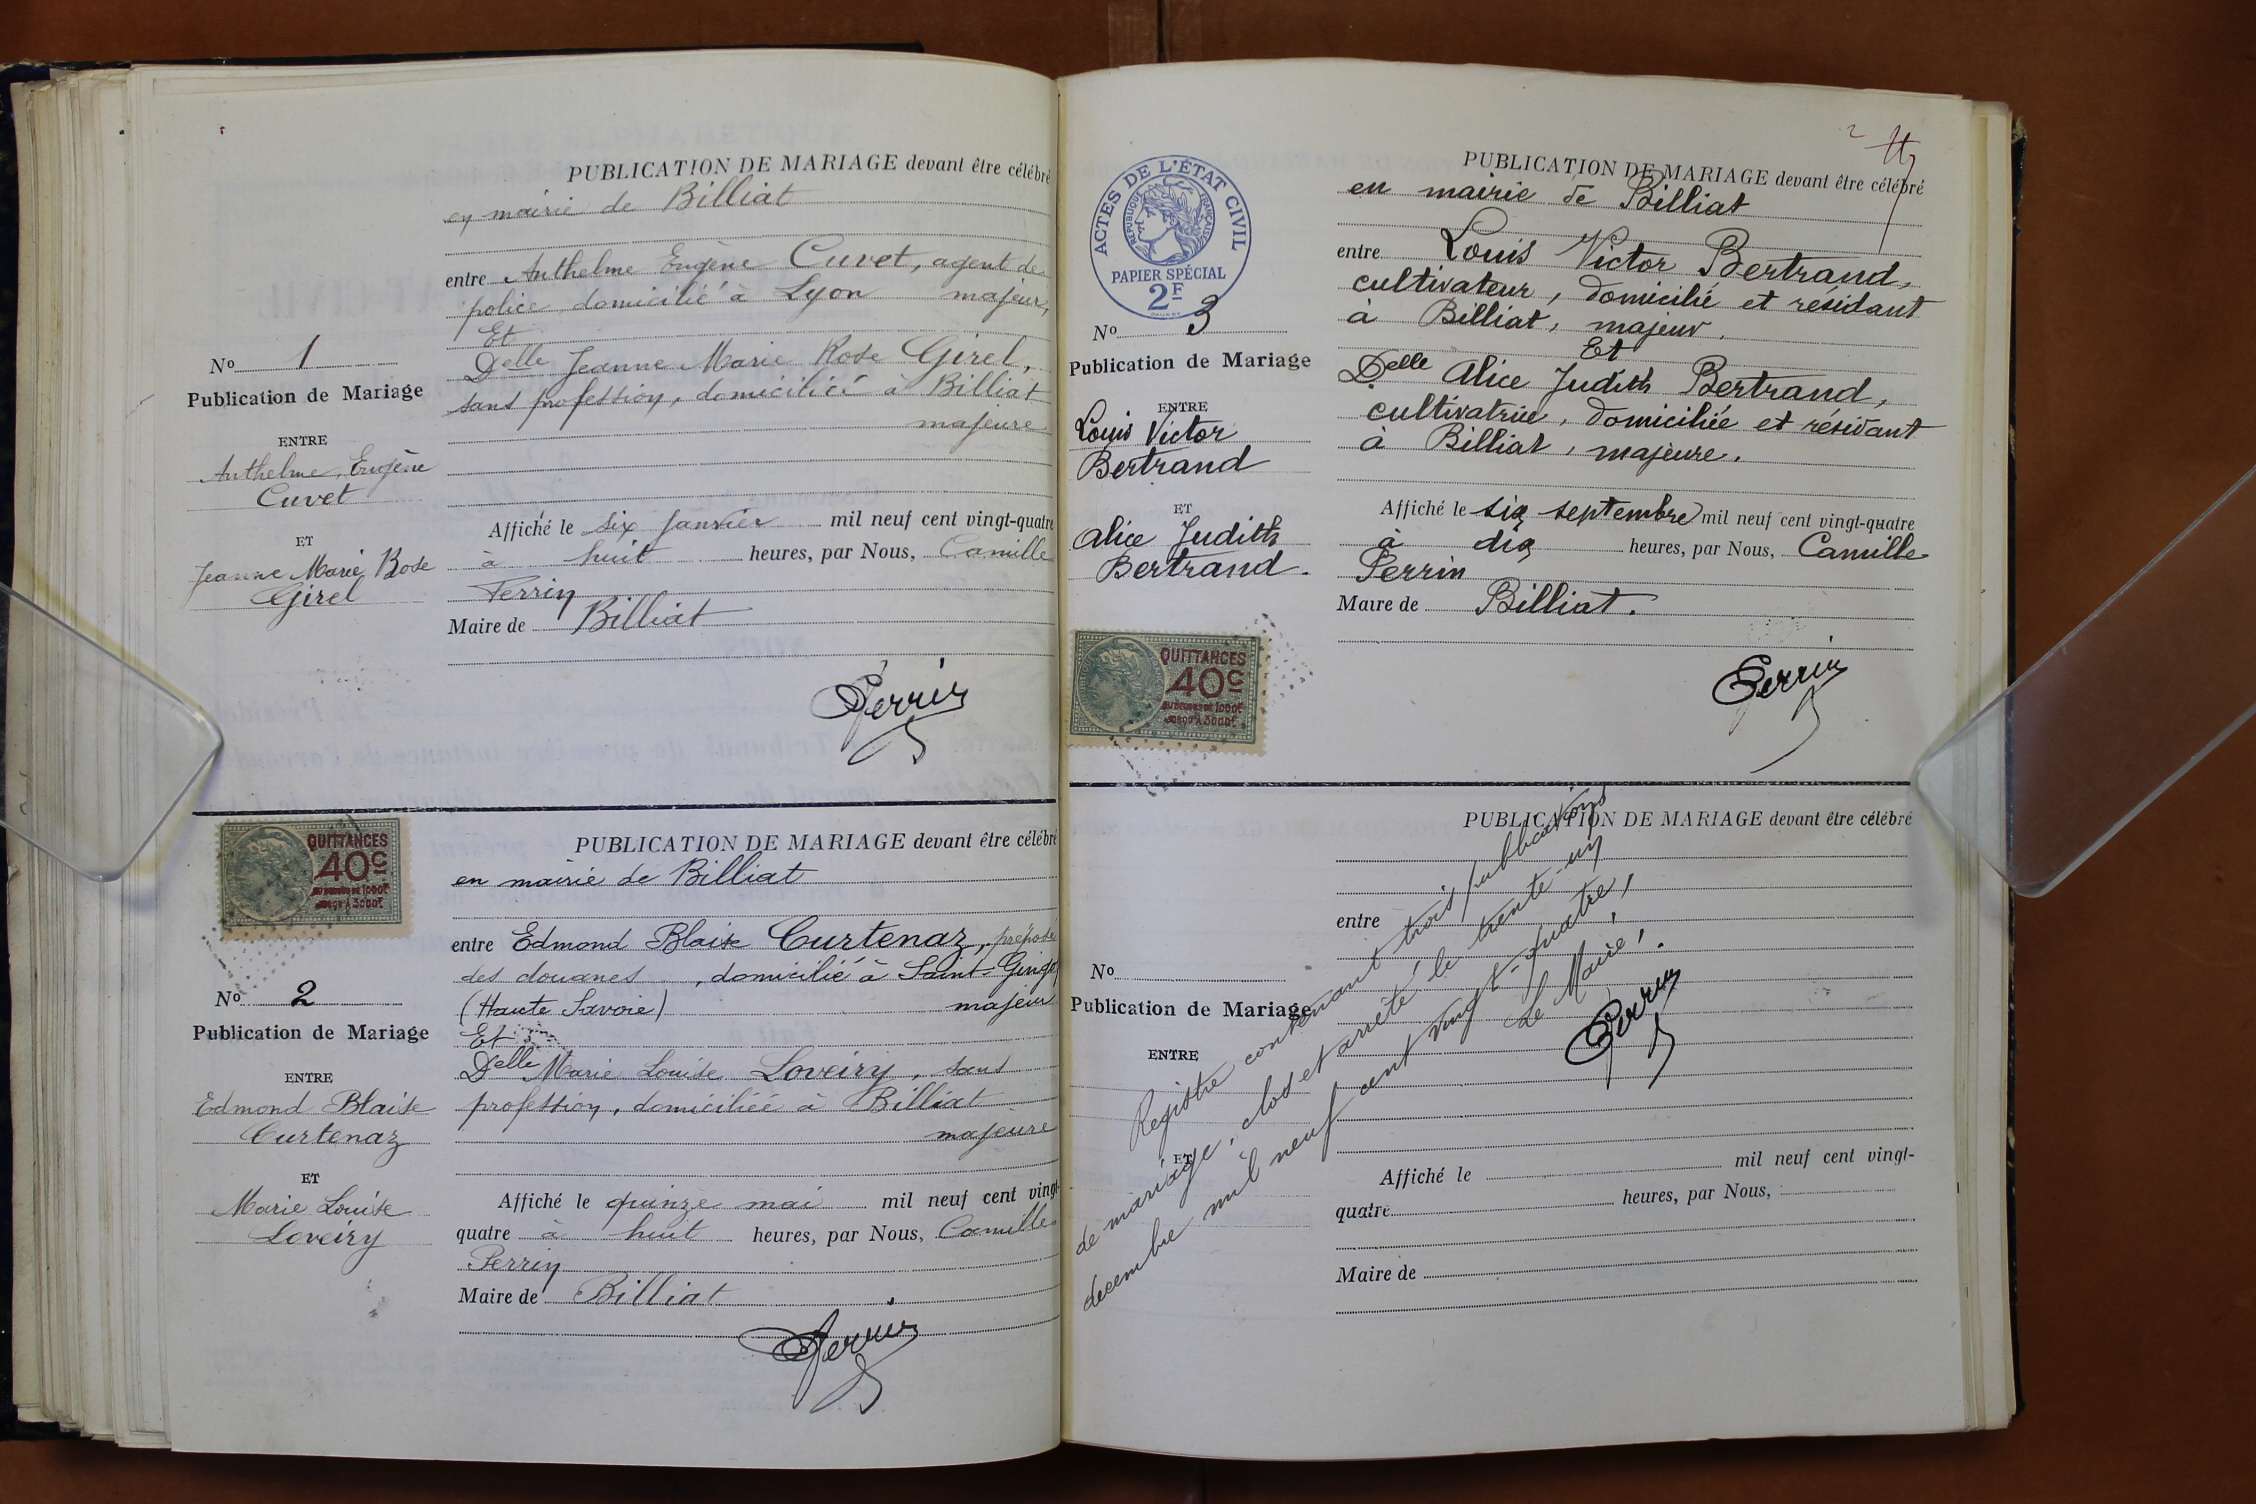 PUBLICATION DE MARIAGE devant être célébré
en mairie de Billiat
entre Anthelme Eugène Cuvet, agent de
police domicilié à Lyon majeur,
Et
Delle Jeanne Marie Rose Girel,
sans profession, domiciliée à Billiat
majeure
No 1
Publication de Mariage
ENTRE
Anthelme Eugène
Cuvet
ET
Jeanne Marie Rose
Girel
Affiché le six janvier mil neuf cent vingt-quatre
à huit heures, par Nous, Camille
Perrin
Maire de Billiat
Perrin
QUITTANCES
40c
AU DESSUS DE 1000F
JUSQU'À 3000F
PUBLICATION DE MARIAGE devant être célébré
en mairie de Billiat
entre Edmond Blaise Curtenaz, préposé
des douanes, domicilié à Saint-Gingo
(Haute Savoie) majeur
Et
Delle Marie Louise Loveiry, sans
profession, domiciliée à Billiat
majeure
No 2
Publication de Mariage
ENTRE
Edmond Blaise
Curtenaz
ET
Marie Louise
Loveiry
Affiché le quinze mai mil neuf cent vingt-
quatre à huit heures, par Nous, Camille
Perrin
Maire de Billiat
Perrin
2
ACTES DE L'ÉTAT CIVIL
RÉPUBLIQUE FRANÇAISE
PAPIER SPÉCIAL
2F
PUBLICATION DE MARIAGE devant être célébré
en mairie de Billiat
entre Louis Victor Bertrand,
cultivateur, domicilié et résidant
à Billiat, majeur.
Et
Delle Alice Judith Bertrand,
cultivatrice, domiciliée et résidant
à Billiat, majeure.
No 3
Publication de Mariage
ENTRE
Louis Victor
Bertrand
ET
Alice Judith
Bertrand.
Affiché le six septembre mil neuf cent vingt-quatre
à dix heures, par Nous, Camille
Perrin
Maire de Billiat.
Perrin
QUITTANCES
40c
AU DESSUS DE 1000F
JUSQU'À 3000F
PUBLICATION DE MARIAGE devant être célébré
entre
No
Publication de Mariage
ENTRE
ET
Registre contenant trois publications
de mariage, clos et arrêté le trente-un
décembre mil neuf cent vingt-quatre,
Le Maire,
Perrin
Affiché le mil neuf cent vingt-
quatre heures, par Nous,
Maire de